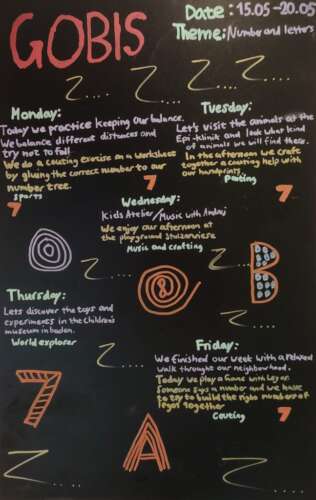 GOBIS
Date: 15.05-20.05
Theme: Number and letters
Z.... Z.... Z.... Z....
Monday:
Today we practice keeping our balance.
We balance different distances and
try not to fall
We do a couting exercise on a worksheet
by gluing the correct number to our
number tree.
Sports
7
7
Tuesday:
Let's visit the animals at the
Epi-Klinik and look what kind
of animals we will find there.
In the afternoon we craft
together a couting help with
our handprints.
Pating
7
Wednesday:
Kids Atelier/Music with Andrej
We enjoy our afternoon at
the playground Stulzenwiese
Music and crafting
Z....
Z....
8
B
Thursday:
Lets discover the toys and
experiments in the Children's
museum in baden.
World explorer
Z....
Z....
Friday:
We finished our week with a relaxed
walk throught our neighborhood.
Today we play a game with Legos.
Someone says a number and we have
to try to build the right number of
legos together
Couting
7
7
A
Z....
Z....